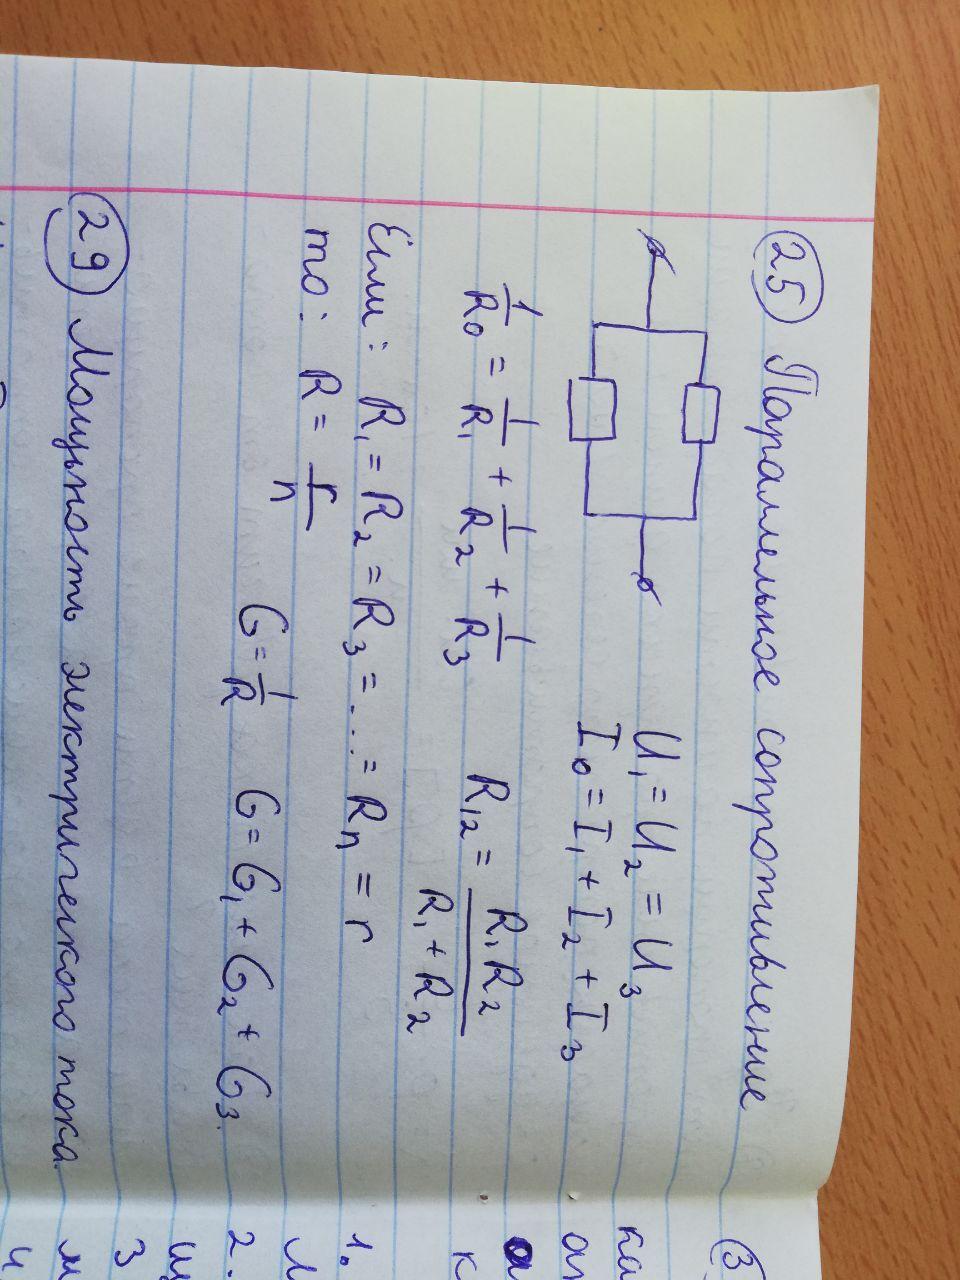 25 Параллельное сопротивление
U₁ = U₂ = U₃
I₀ = I₁ + I₂ + I₃
1/R₀ = 1/R₁ + 1/R₂ + 1/R₃
R₁₂ = R₁R₂/(R₁ + R₂)
Если: R₁ = R₂ = R₃ = ... = Rₙ = r
то: R = r/n
G = 1/R G = G₁ + G₂ + G₃.
29 Мощьность электрического тока.
3
ка
а
к
1.
2.
3